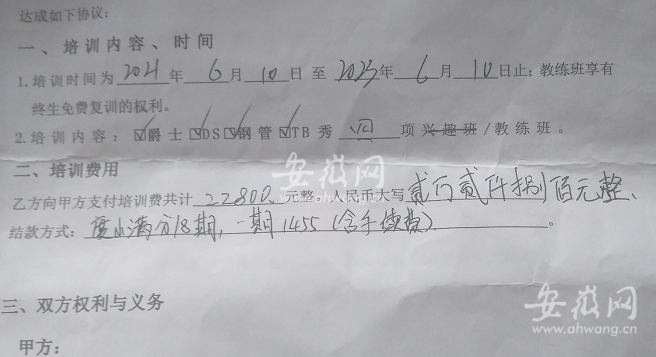 达成如下协议：
一、培训内容、时间
1.培训时间为2021年6月10日至2023年6月10日止；教练班享有
终生免费复训的权利。
2.培训内容：☑爵士☑DS☑钢管☑TB秀 四 项兴趣班/教练班。
二、培训费用
乙方向甲方支付培训费共计22800元整。人民币大写贰万贰仟捌佰元整、
结款方式：度小满分18期，一期1455（含手续费）。
三、双方权利与义务
甲方：
安徽网
安徽网
www.ahwang.cn